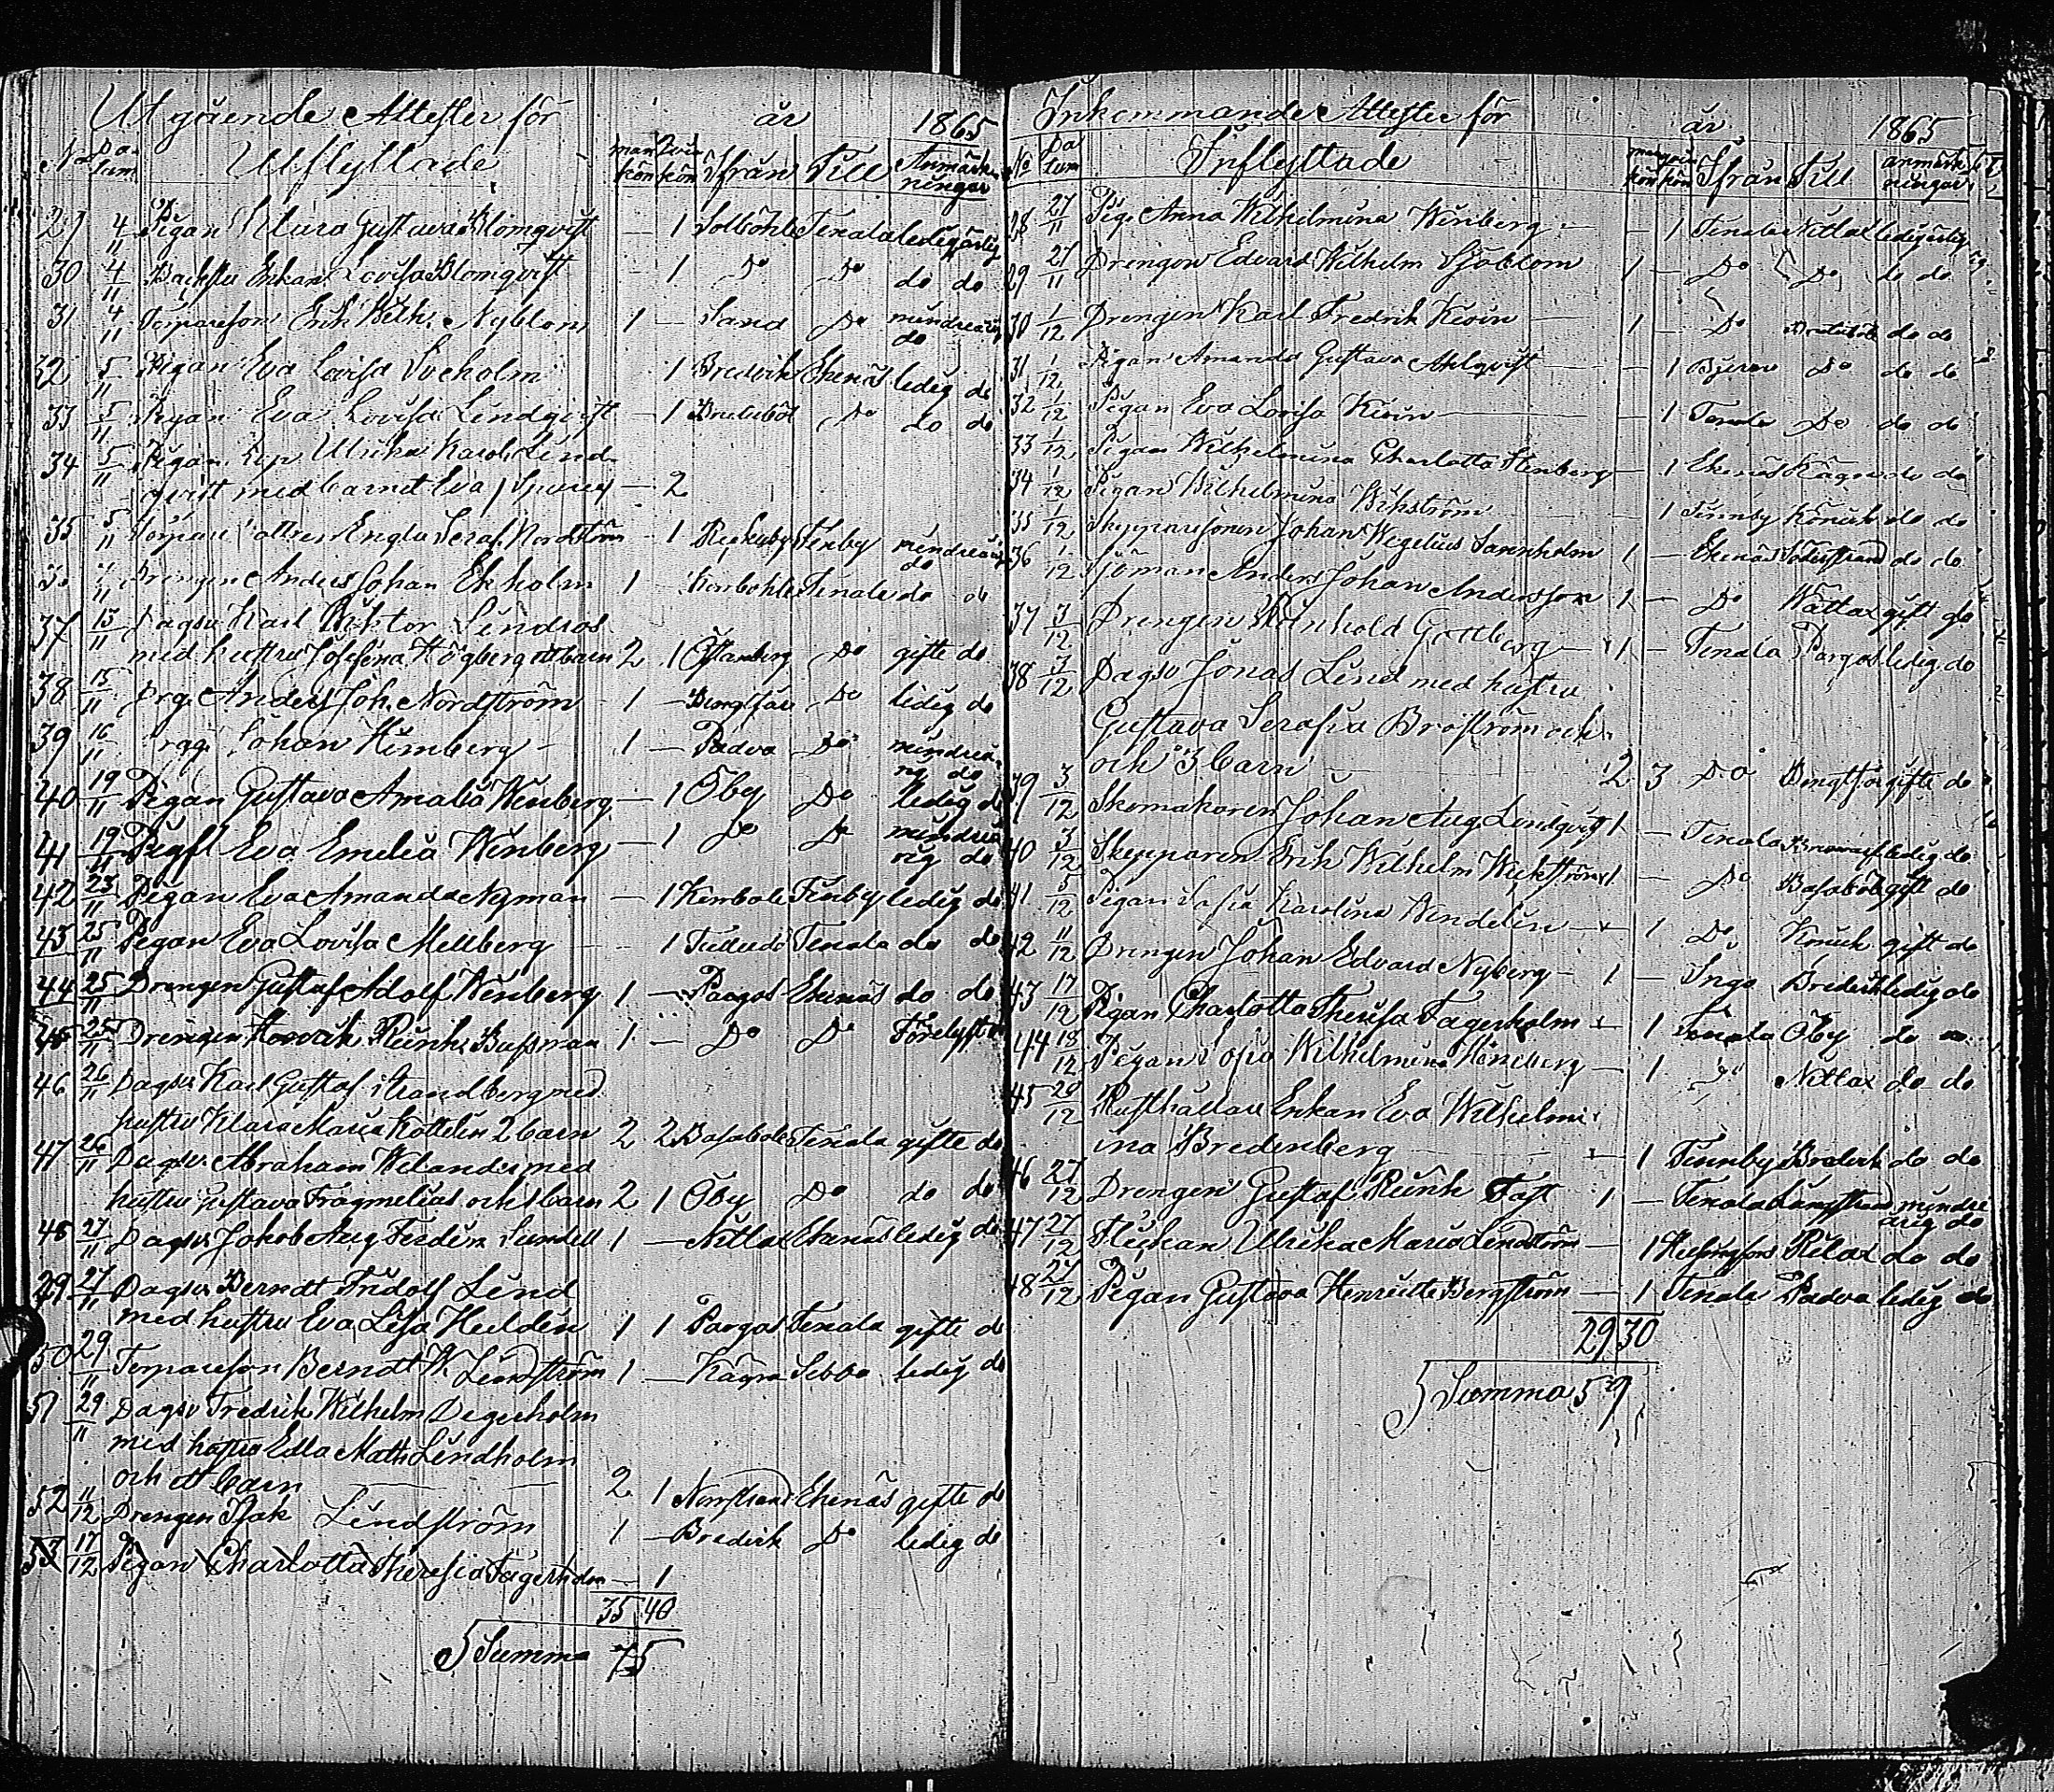 Utgående Attester för år 1865
No Datum Utflyttade mankön qvinkön Ifrån Till Anmärkningar
29 4/11 Pigan Klara Gustava Blomqvist — 1 Solböhle Tenala ledig ärlig
30 4/11 Backstu Enkan Lovisa Blomqvist — 1 Do Do do do
31 4/11 Torpareson Erik Wilh. Nyblom 1 — Sand Do mindreårig
do
32 5/11 Pigan Eva Lovisa Söeholm 1 Bredvik Ekenäs ledig do
33 5/11 Pigan Eva Lovisa Lindqvist — 1 Do do do
34 5/11 Pigan Ulrika Karol. Lind-
qvist med barnet Eva — 2
35 5/11 Engla Seraf. Nordström — 1 Finby mindreårig
do
11 Drengen Anders Johan Ekholm 1 Tenala do do
37 15/11 Dagsv Karl Viktor Lindros
med hustru Josefina Högberg ett barn 2 1 Östanberg Do gifte do
38 15/11 Drg. Anders Joh. Nordström 1 — Do ledig do
39 16/11 Johan Himberg — 1 — Padva Do mindreå-
rig do
40 19/11 Pigan Gustava Amalia Winberg — 1 Öby Do ledig do
41 19/11 Pigfl Eva Emelia Winberg — 1 Do Do mindreå
rig do
42 23/11 Pigan Eva Amanda Nyman — 1 Kimbole Finby ledig do
43 25/11 Pigan Eva Lovisa Mellberg 1 Tenala do do
44 25/11 Drengen Gustaf Adolf Winberg 1 — Pargos Ekenäs do do
45 25/11 Drengen Reinh. Bussman 1 — Do Do
46 26/11 Dagsv Karl Gustaf Strandberg med
hustru Klara Maria Kottelin 2 barn 2 2 Basaböle Tenala gifte do
47 26/11 Dagsv. Abraham Welander med
hustru Gustava Fragmelias och 1 barn 2 1 Öby Do do do
48 27/11 Dagsv. Jakob Aug Ferdin. Sundell 1 — Nitlax Ekenäs ledig do
49 27/11 Dagsv Berndt Fridolf Lind
med hustru Eva Lisa Helldén 1 1 Pargas Tenala gifte do
50 29/11 Torpareson Berndt W. Lindström 1 — Kägra Sibbo ledig do
51 29/11 Dagsv Fredrik Wilhelm Degerholm
med hustru Edla Math Lindholm
och ett barn 2 1 Norrstrand Ekenäs gifte do
52 11/12 Drengen Isak Lindström 1 — Bredvik Do ledig do
53 17/12 Pigan Charlotta Theresia Fagerholm — 1
35 40
Summa 75
Inkommande Attester för år 1865
No Datum Inflyttade mankön qvinkön Ifrån Till anmärkningar
28 27/11 Pig. Anna Wilhelmina Winberg — 1 Tenala Nitlax ledig ärlig
29 27/11 Drengen Edvard Wilhelm Sjöblom 1 — Do Do do do
30 1/12 Drengen Karl Fredrik Kevin 1 — Do do do
31 1/12 Pigan Amanda Gustava Ahlqvist — 1 Do do do
32 1/12 Pigan Eva Lovisa Kevin — 1 Tenala Do do do
33 1/12 Pigan Wilhelmina Charlotta Stenberg — 1 Ekenäs do
34 1/12 Pigan Wilhelmina Wikström — 1 Finnby Könick do do
35 1/12 Skepparesonen Johan Wegelius Sannholm 1 — Ekenäs Söderstrand do do
36 1/12 Sjöman Anders Johan Andersson 1 — Do Wättlax gift do
37 3/12 Drengen Reinhold Gottberg — 1 — Tenala Pargas ledig do
38 3/12 Dagsv Jonas Lind med hustru
Gustava Serafia Broström och
och 3 barn — 2 3 Do gifte do
39 3/12 Skomakaren Johan Aug. Lindqvist 1 — Tenala ledig do
40 3/12 Skepparen Erik Wilhelm Wickström 1 — Do Basaböle gift do
41 5/12 Pigan Sofia Karolina Wendelin — 1 Do Könick gift do
42 11/12 Drengen Johan Edvard Nyberg — 1 — Ingo Bredvik ledig do
43 17/12 Pigan Charlotta Theresia Fagerholm — 1 Tenala Öby do do
44 18/12 Pigan Sofia Wilhelmina — 1 Do Nitlax do do
45 20/12 Rusthållare Enkan Eva Wilhelm-
ina Bredenberg — 1 Finnby Bredvik do do
46 27/12 Drengen Gustaf Reinh Fast 1 — Tenala Långstrand mindre
årig do
47 27/12 Flickan Ulrika Maria Lindström — 1 Helsingfors Rilax do do
48 27/12 Pigan Gustava Henriette Bergström — 1 Tenala Padva ledig do
29 30
Summa 59